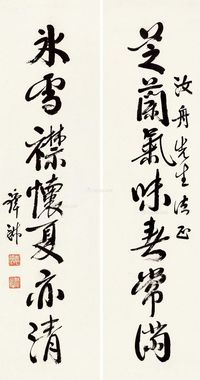 芝蘭氣味春常滿
汝舟先生法正
冰雪襟懷夏亦清